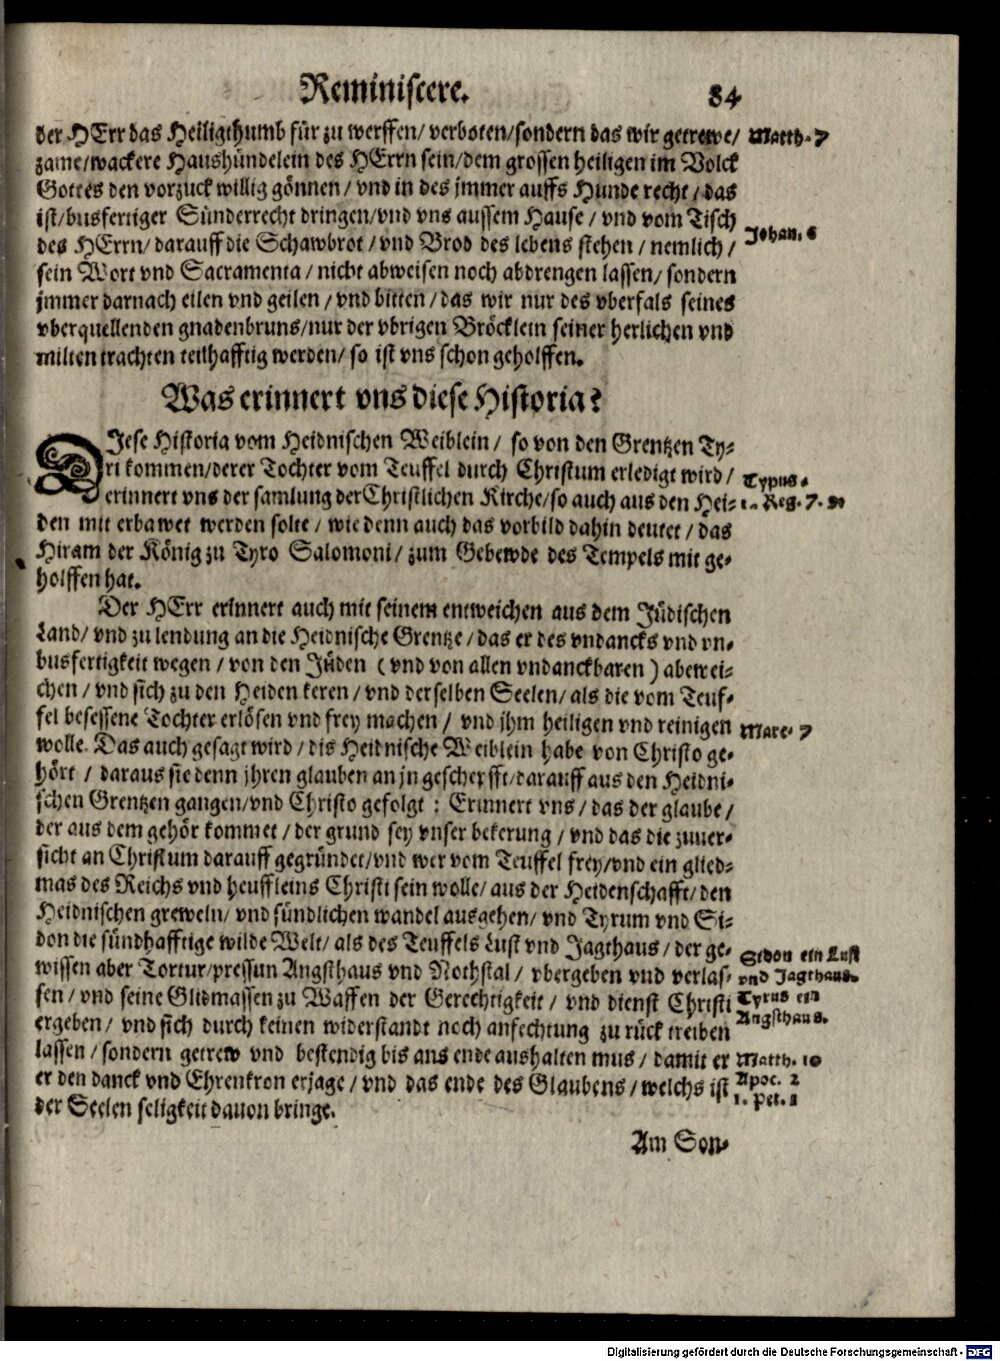 Reminiscere. 84
der HErr das Heiligthumb für zu werffen/ verboten/sondern das wir getrewe/ Matth. 7
zame/wackere Haushündelein des HErrn sein/dem grossen heiligen im Volck
Gottes den vorzuck willig gönnen/ vnd in des jmmer auffs Hunde recht/ das
ist/busfertiger Sünderrecht dringen/vnd vns aussem Hause/ vnd vom Tisch
des HErrn/ darauff die Schawbrot/ vnd Brod des lebens stehen/ nemlich/ Johan. 6
sein Wort vnd Sacramenta/ nicht abweisen noch abdrengen lassen/ sondern
jmmer darnach eilen vnd geilen/ vnd bitten/ das wir nur des vberfals seines
vberquellenden gnadenbruns/nur der vbrigen Bröcklein seiner herlichen vnd
milten trachten teilhafftig werden/ so ist vns schon geholffen.
Was erinnert vns diese Historia?
DJese Historia vom Heidnischen Weiblein/ so von den Grentzen Ty-
ri kommen/derer Tochter vom Teuffel durch Christum erledigt wird/ Typus.
erinnert vns der samlung der Christlichen Kirche/so auch aus den Hei- 1. Reg. 7. 9
den mit erbawet werden solte/ wie denn auch das vorbild dahin deutet/ das
Hiram der König zu Tyro Salomoni/ zum Gebewde des Tempels mit ge-
holffen hat.
Der HErr erinnert auch mit seinem entweichen aus dem Jüdischen
Land/ vnd zu lendung an die Heidnische Grentze/ das er des vndancks vnd vn-
busfertigkeit wegen/ von den Jüden (vnd von allen vndanckbaren) abewei-
chen/ vnd sich zu den Heiden keren/ vnd derselben Seelen/ als die vom Teuf-
fel besessene Tochter erlösen vnd frey machen/ vnd jhm heiligen vnd reinigen Marc. 7
wolle. Das auch gesagt wird/ dis Heidnische Weiblein habe von Christo ge-
hört/ daraus sie denn jhren glauben an jn gescherpfft/darauff aus den Heidni-
schen Grentzen gangen/vnd Christo gefolgt: Erinnert vns/ das der glaube/
der aus dem gehör kommet/ der grund sey vnser bekerung/ vnd das die zuuer-
sicht an Christum darauff gegründet/vnd wer vom Teuffel frey/vnd ein glied-
mas des Reichs vnd heuffleins Christi sein wolle/ aus der Heidenschafft/ den
Heidnischen greweln/ vnd sündlichen wandel ausgehen/ vnd Tyrum vnd Si-
don die sündhafftige wilde Welt/ als des Teuffels Lust vnd Jagthaus/ der ge- Sidon ein Lust
wissen aber Tortur/pressun Angsthaus vnd Nothstal/ vbergeben vnd verlas- vnd Jagthaus.
sen/ vnd seine Glidmassen zu Waffen der Gerechtigkeit/ vnd dienst Christi Tyrus ein
ergeben/ vnd sich durch keinen widerstandt noch anfechtung zu rück treiben Angsthaus.
lassen/sondern getrew vnd bestendig bis ans ende aushalten mus/ damit er Matth. 10
er den danck vnd Ehrenkron erjage/ vnd das ende des Glaubens/ welchs ist Apoc. 2
der Seelen seligkeit dauon bringe. 1. Pet. 1
Am Son-
Digitalisierung gefördert durch die Deutsche Forschungsgemeinschaft - DFG